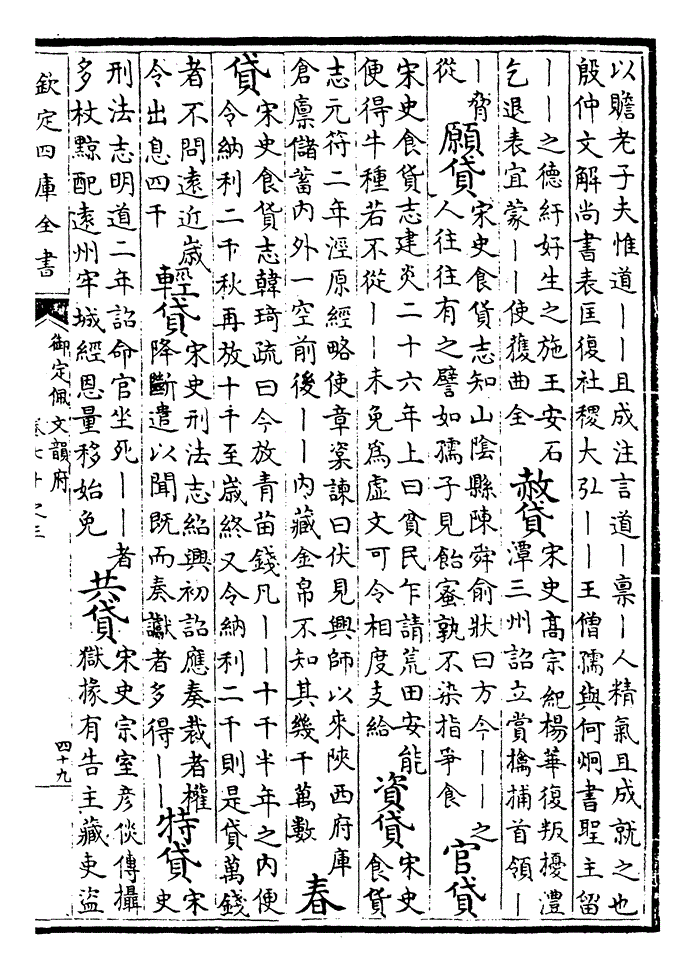 以贍老子夫惟道——且成注言道—禀—人精氣且成就之也
殷仲文解尚書表匡復社稷大弘——王僧孺與何炯書聖主留
——之德紆好生之施王安石
乞退表宜蒙——使獲曲全
赦貸
宋史髙宗紀楊華復叛擾澧
潭三州詔立賞擒捕首領—
—脅
從
願貸
宋史食貨志知山陰縣陳舜俞狀曰方今——之
人往往有之譬如孺子見飴蜜孰不染指爭食
官貸
宋史食貨志建炎二十六年上曰貧民乍請荒田安能
便得牛種若不從——未免爲虚文可令相度支給
資貸
宋史
食貨
志元符二年涇原經略使章楶諫曰伏見興師以來陜西府庫
倉廪儲蓄内外一空前後——内藏金帛不知其幾千萬數
春
貸
宋史食貨志韓琦疏曰今放青苗錢凡——十千半年之内便
令納利二千秋再放十千至歳終又令納利二千則是貸萬錢
者不問遠近歳
令出息四千
輕貸
宋史刑法志紹興初詔應奏裁者權
降斷遣以聞既而奏讞者多得——
特貸
宋
史
刑法志明道二年詔命官坐死——者
多杖黥配逺州牢城經恩量移始免
共貸
宋史宗室彦倓傳攝
獄掾有告主藏吏盜
欽定四庫全書
御定佩文韻府
卷七十之三
四十九